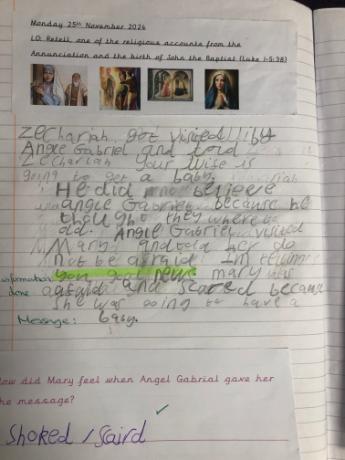 Monday 25th November 2024
LO: Retell one of the religious accounts from the
Annunciation and the birth of John the Baptist (Luke 1:5-38)
Zechariah got visited by
Angle Gabriel and told
Zechariah your wise is
going to get a baby.
He did not believe
angle Gabriel because he
thought they where to
old. Angle Gabriel visited
Mary and told her do
not be afraid Im
you got news mary was
afraid and scared because
done
she was going to have a
Message: baby.
How did Mary feel when Angel Gabrial gave her
the message?
Shoked / Scaird